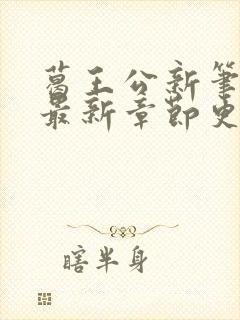 葛王公新笔
最新章节史
瞎半身